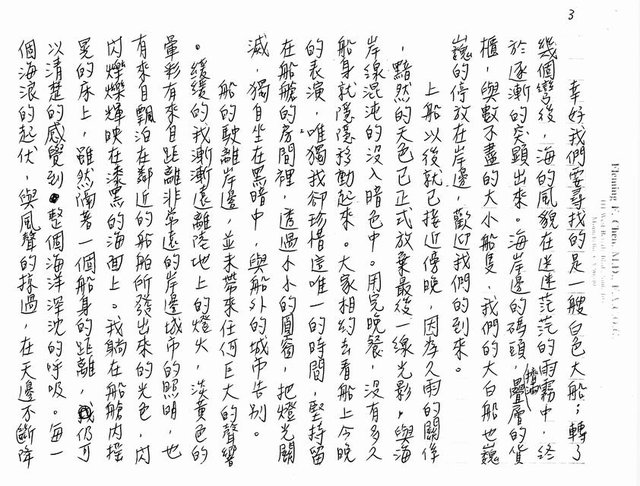 3
Fleming F. Chen, M.D., F.A.C.O.G.
幸好我們要尋找的是一艘白色大船；轉了
幾個彎後，海的風貌在迷迷茫茫的雨霧中，終
於逐漸的突顯出來。海岸邊的碼頭，擠滿疊層的貨
櫃，與數不盡的大小船隻，我們的大白船也巍
巍的停放在岸邊，歡迎我們的到來。
上船以後就已接近傍晚，因為久雨的關係
，黯然的天色已正式放棄最後一線光影，與海
岸線混沌的沒入暗色中。用完晚餐，沒有多久
船身就隱隱移動起來。大家相約去看船上今晚
的表演，唯獨我卻珍惜這唯一的時間，堅持留
在船艙的房間裡，透過小小的圓窗，把燈光關
滅，獨自坐在黑暗中，與船外的城市告別。
船的駛離岸邊，並未帶來任何巨大的聲響
。緩緩的我漸漸遠離陸地上的燈火，淡黃色的
暈彩有來自距離非常遠的岸邊城市的照明，也
有來自飄泊在鄰近的船舶所發出來的光色，閃
閃爍爍輝映在漆黑的海面上。我躺在船艙內搖
晃的床上，雖然隔著一個船身的距離，我仍可
以清楚的感覺到整個海洋深沈的呼吸。每一
個海浪的起伏，與風聲的掠過，在天邊不斷降